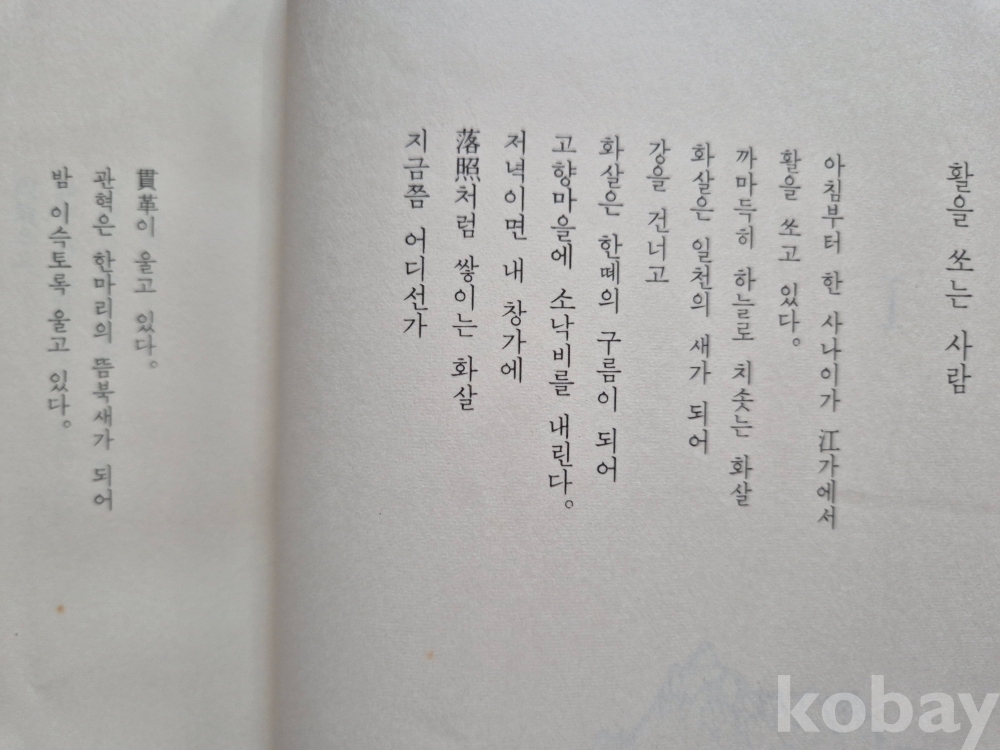 활을 쏘는 사람
아침부터 한 사나이가 江가에서
활을 쏘고 있다。
까마득히 하늘로 치솟는 화살
화살은 일천의 새가 되어
강을 건너고
화살은 한떼의 구름이 되어
고향마을에 소낙비를 내린다。
저녁이면 내 창가에
落照처럼 쌓이는 화살
지금쯤 어디선가
貫革이 울고 있다。
관혁은 한마리의 뜸북새가 되어
밤 이슥토록 울고 있다。
kobay